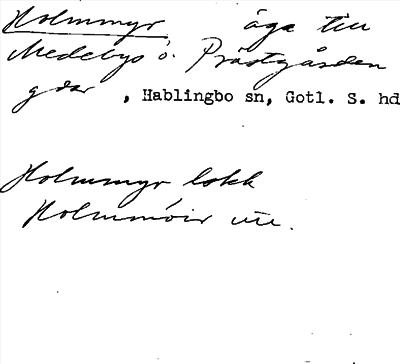 Holmmyr äga till
Medebys o. Prästgården
gdar, Hablingbo sn, Gotl. S. hd
Holmmyr lokk
Holmmóir